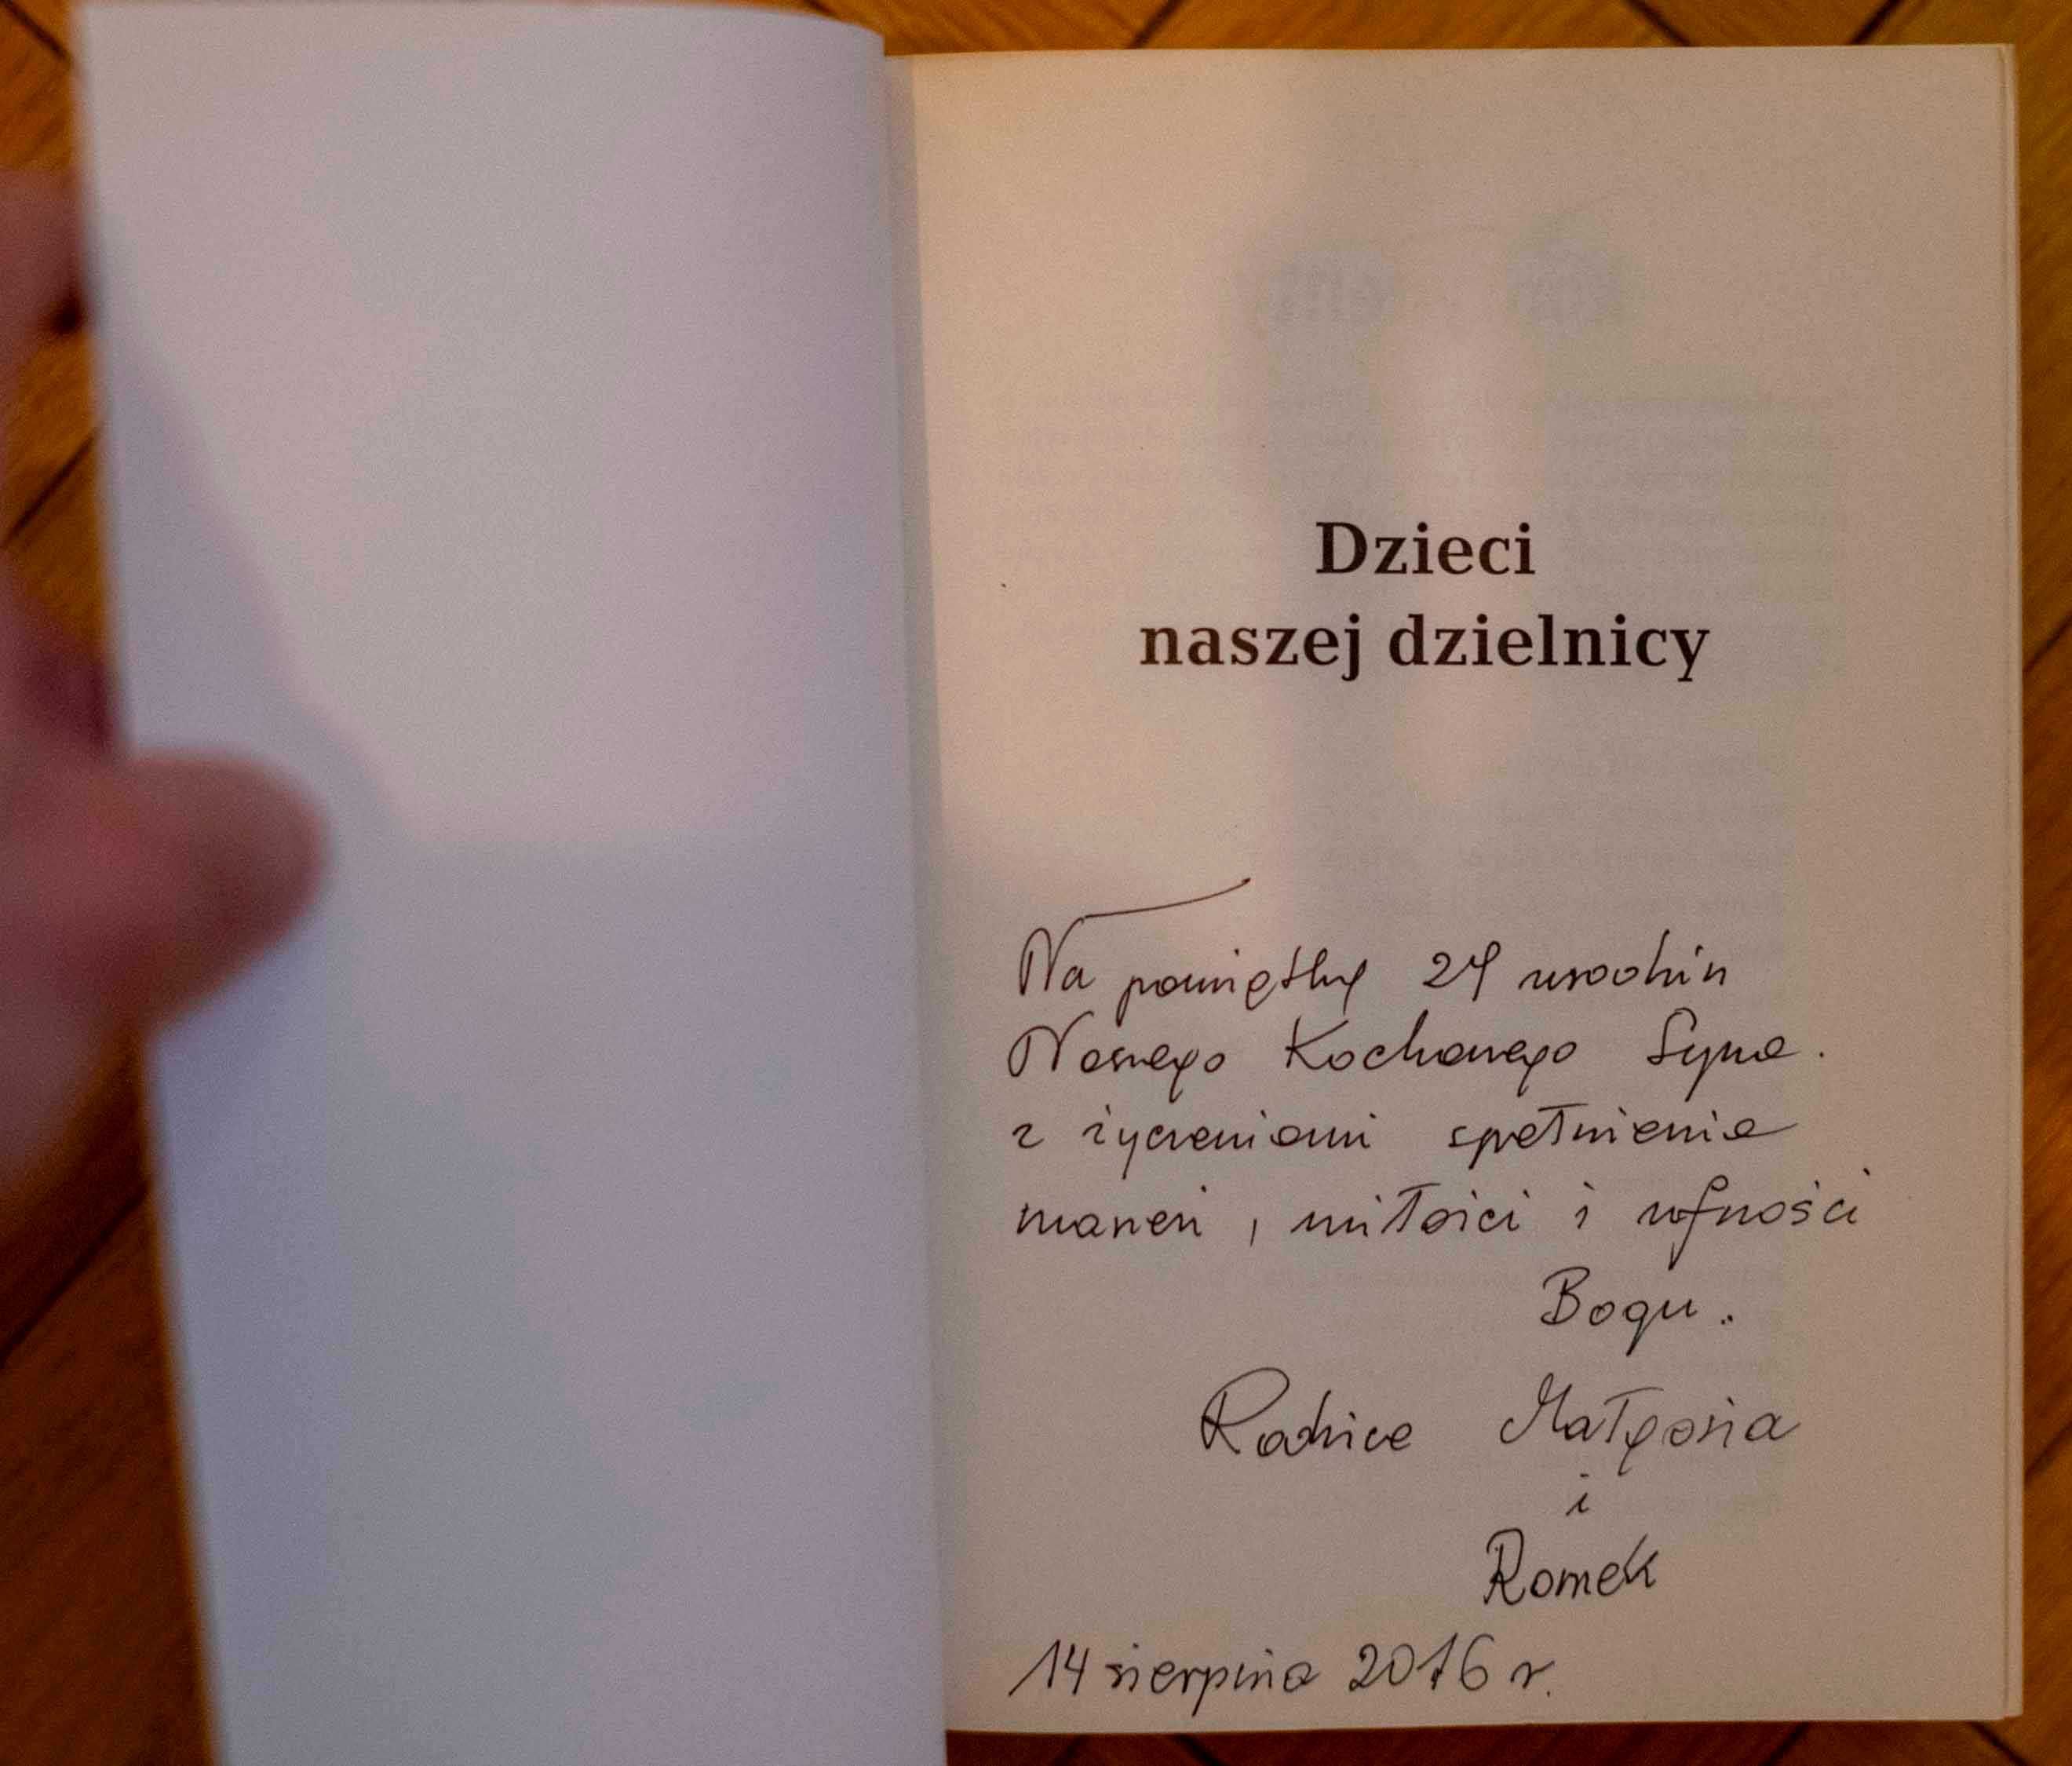 Dzieci
naszej dzielnicy
Na pamiątkę 24 urodzin
Naszego Kochanego Syna.
z życzeniami spełnienia
marzeń, miłości i ufności
Bogu.
Rodzice Małgosia
i
Romek
14 sierpnia 2016 r.